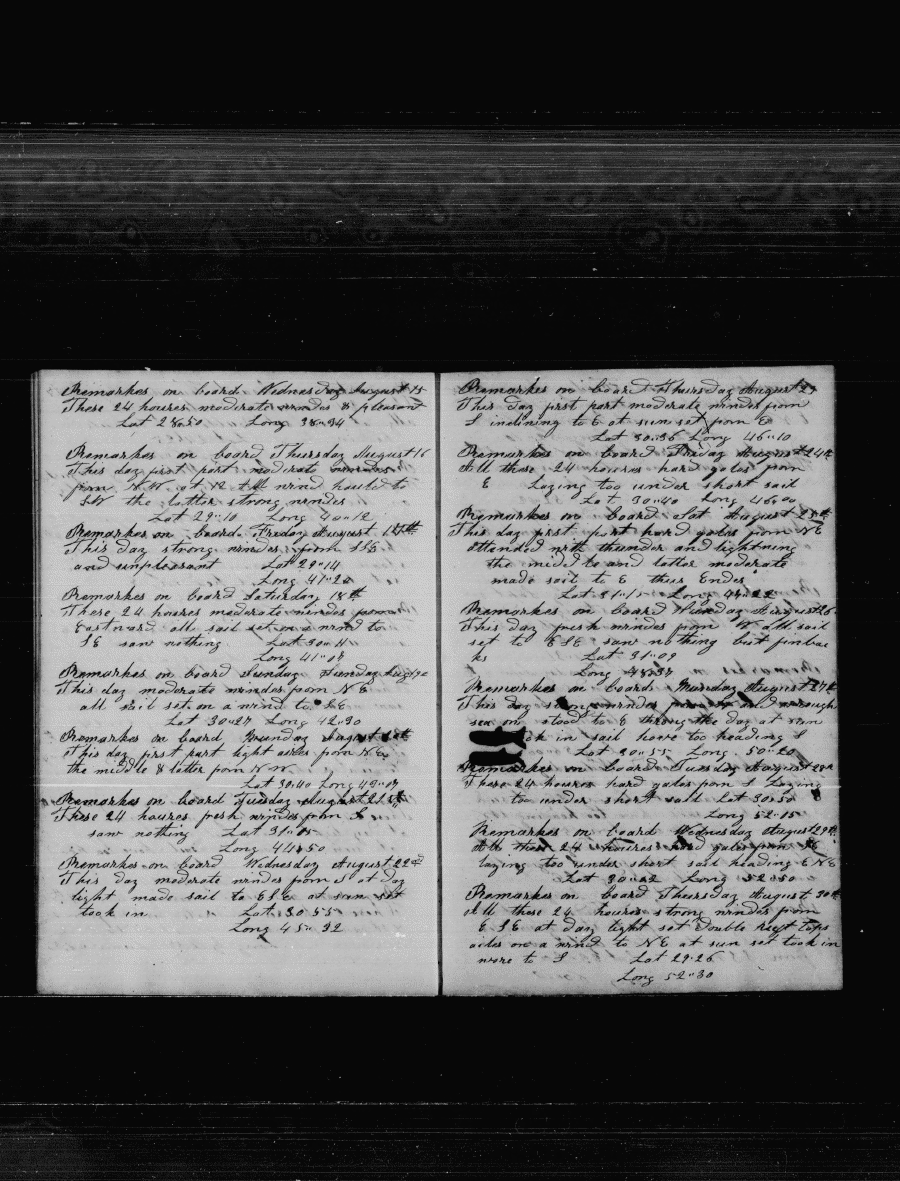 Remarkes on board Wednesday August 15
These 24 houres moderate windes & pleasant
Lat 28"50 Long 38"34
Remarkes on board Thursday August 16
This day first part moderate windes
from N.W. at 12 the wind hauled to
the latter strong windes
Lat 29"10 Long 40"12
Remarkes on board Friday August 17th
This day strong windes from SSE
and unpleasant Lat 29"14
Long 41"20
Remarkes on board Saturday 18th
These 24 houres moderate windes from
Eastward all sail set on a wind to
SE saw nothing Lat 30"11
Long 41"01
Remarkes on board Sunday Sunday Aug 19
This day moderate windes from NE
all sail set on a wind to SE
Lat 30"27 Long 42"30
Remarkes on board Munday August
This day first part light aires from NE
the middle & latter from N.W.
Lat 30"40 Long
Remarkes on board Tuesday August 21st
These 24 houres fresh windes from S
saw nothing Lat 31"05
Long 44"50
Remarkes on board Wednesday August 22d
This day moderate windes from S at day
light made sail to ESE at sun set
took in Lat 30"55
Long 45"32
Remarkes on board Thursday August 23
This day first part moderate windes from
S inclining to E at sun set from E
Lat 30"36 Long 46"10
Remarkes on board Friday August 24th
All these 24 houres hard gales from
E Laying too under short sail
Lat 30"40 Long 46"00
Remarkes on board Sat August 25th
This day first part hard gales from NE
attended with thunder and lightning
the middle and latter moderate
made sail to E thus Endes
Lat 31"15 Long
Remarkes on board Munday August 26
This day fresh windes from W all sail
set to ESE saw nothing but finbac
ks Lat 31"09
Long 48"37
Remarkes on board Munday August 27th
This day strong windes from and a rough
sea on stood to E throug the day at sun
ok in sail hove too heading S
Lat 30"55 Long 50"20
Remarkes on board Tuesday August 28th
These 24 houres hard gales from S Laying
too under short sail Lat 30"50
Long 52"15
Remarkes on board Wednesday August 29th
All these 24 houres hard gales from
laying too under short sail heading ENE
Lat 30"02 Long 52"50
Remarkes on board Thursday August 30th
All these 24 houres strong windes from
E SE at day light set double reef tops
ailes on a wind to NE at sun set took in
wore to S Lat 29"26
Long 52"30